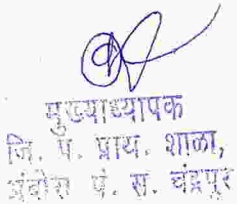 मुख्याध्यापक
जि. प. प्राथ. शाळा,
पं. स. चंद्रपूर